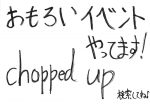 おもろいイベント
やってます!
chopped up
検索してね♪